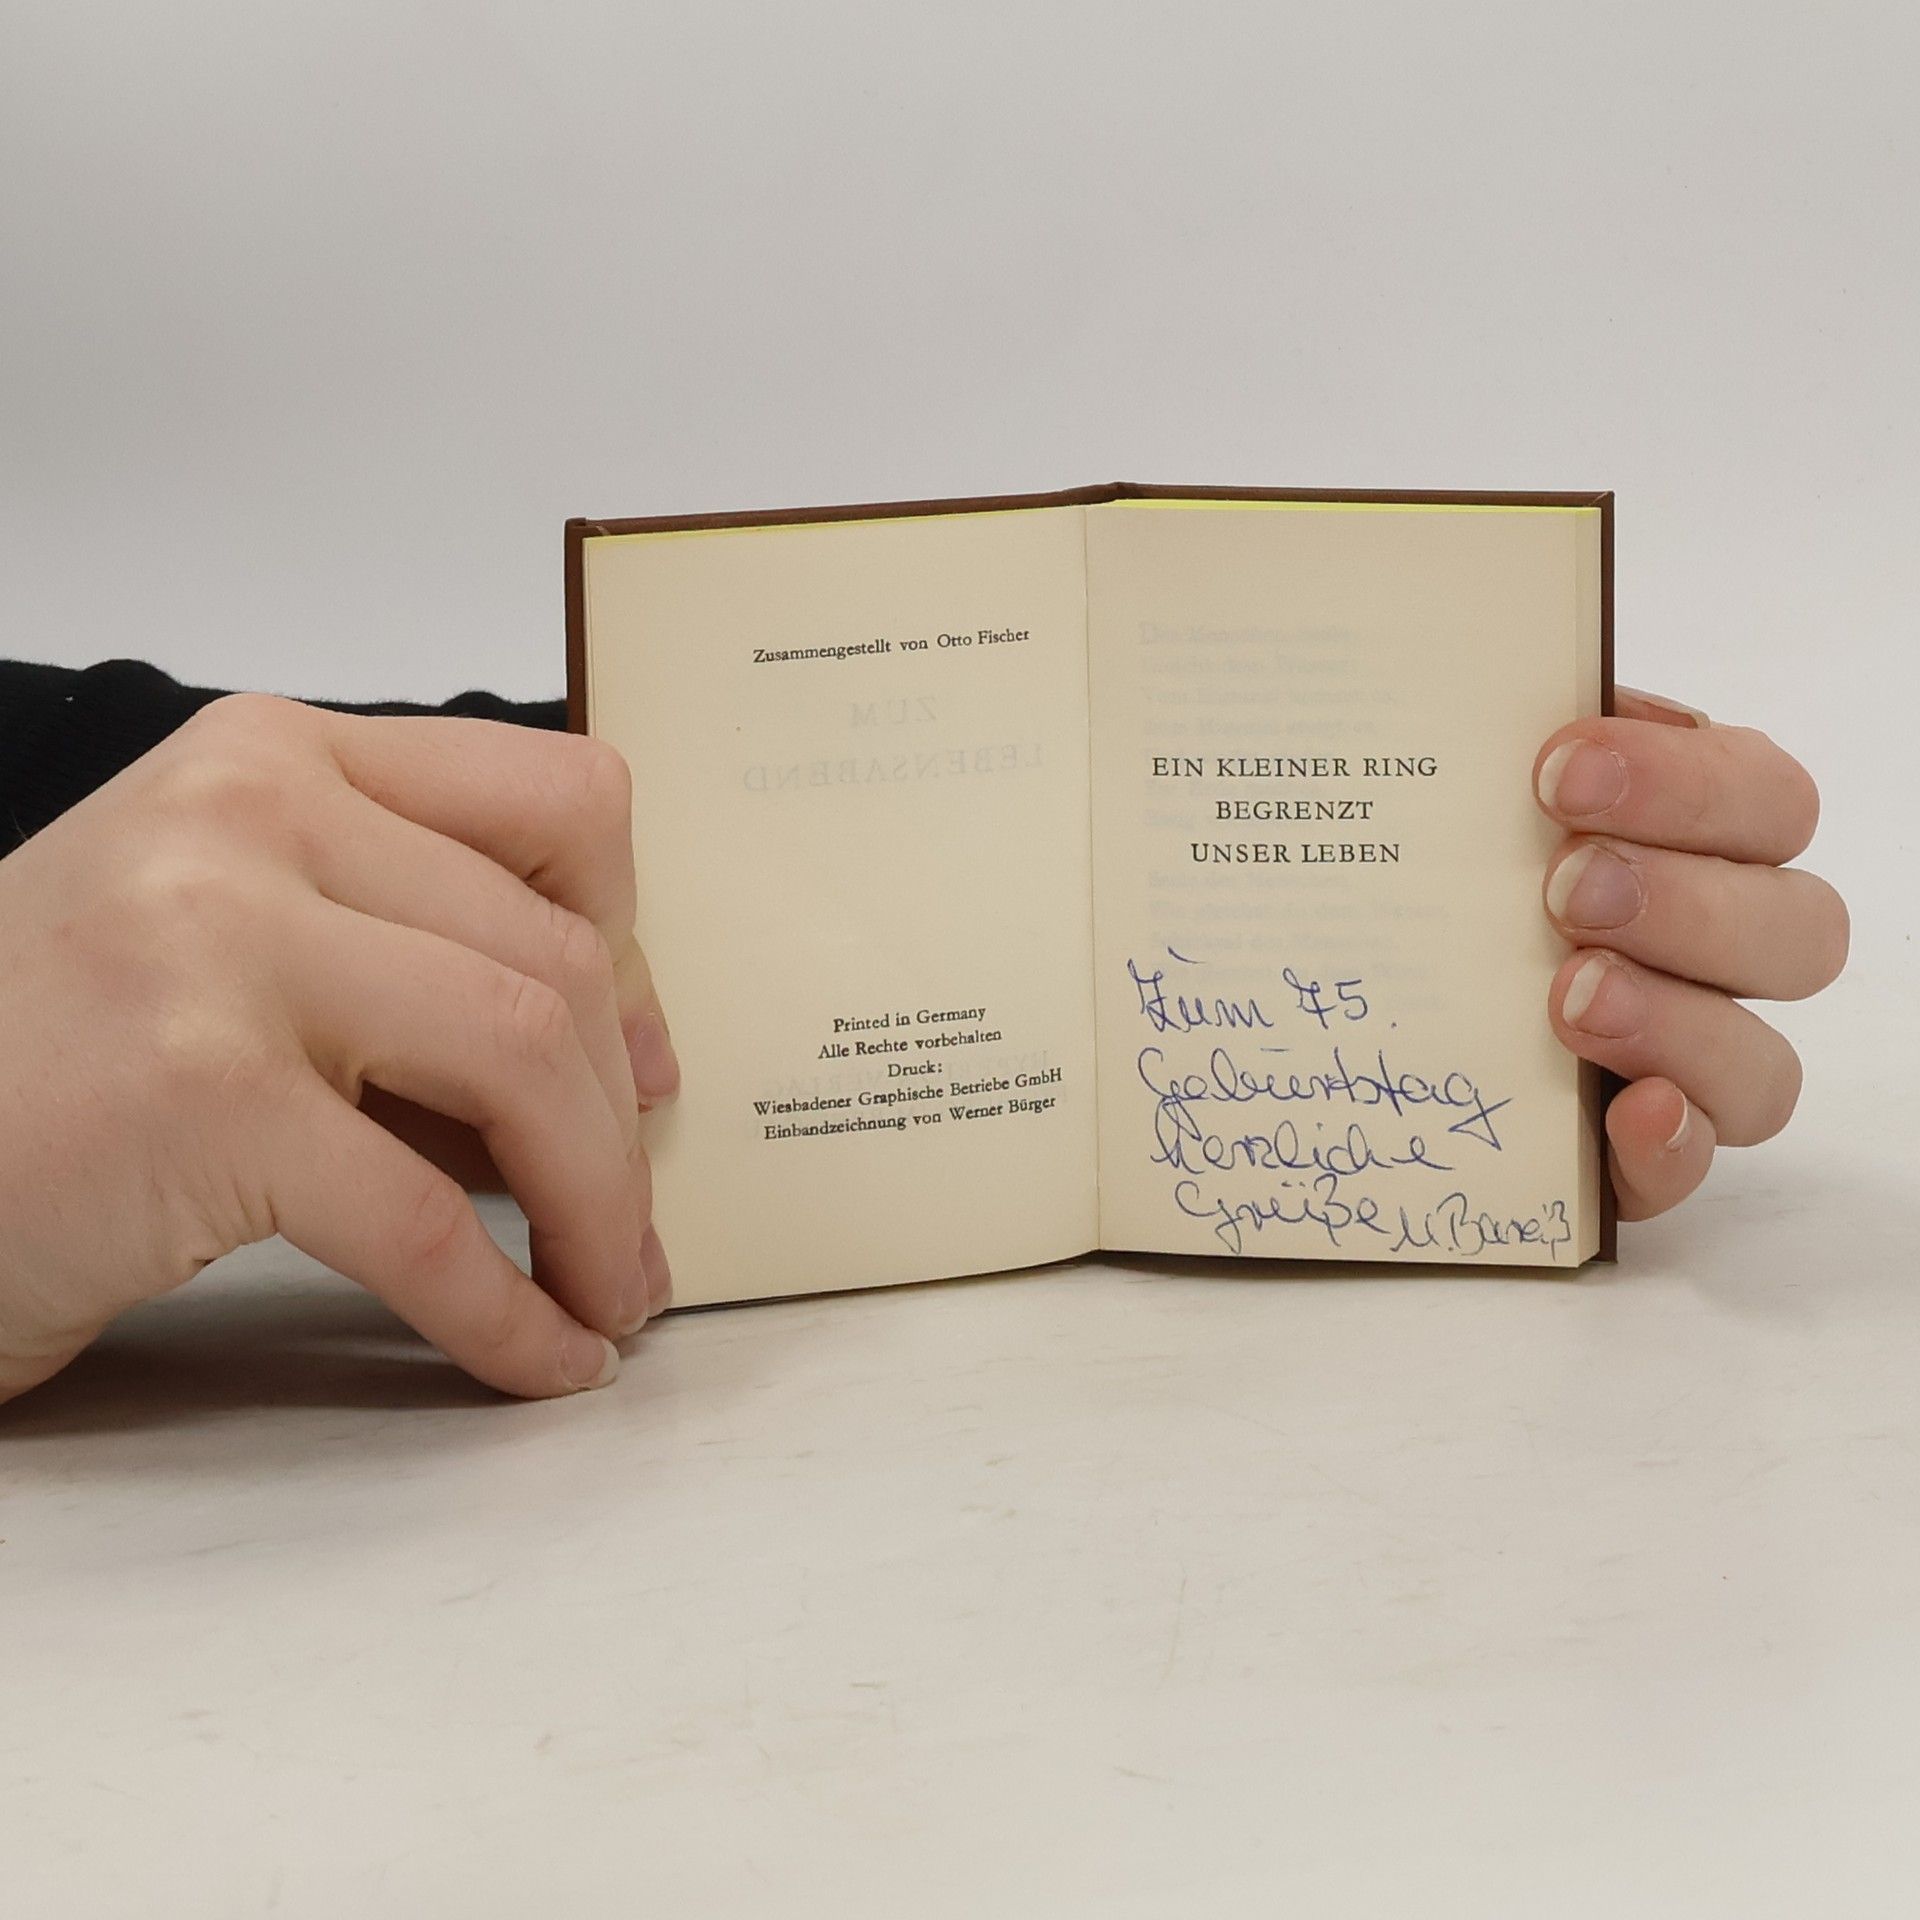 Zusammengestellt von Otto Fischer
ZUM
LEBENSABEND
Printed in Germany
Alle Rechte vorbehalten
Druck:
Wiesbadener Graphische Betriebe GmbH
Einbandzeichnung von Werner Bürger
EIN KLEINER RING
BEGRENZT
UNSER LEBEN
Zum 75.
Geburtstag
herzliche
Grüße